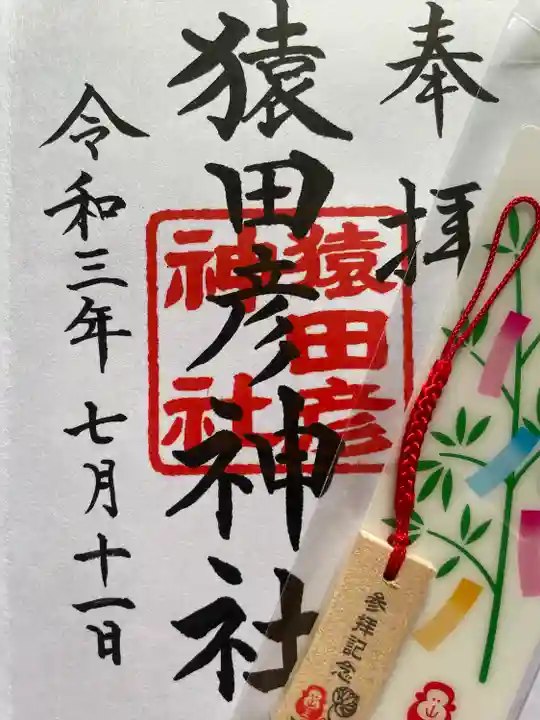 奉拝
猿田彦神社
猿田彦
神社
令和三年七月十一日
参拝記念